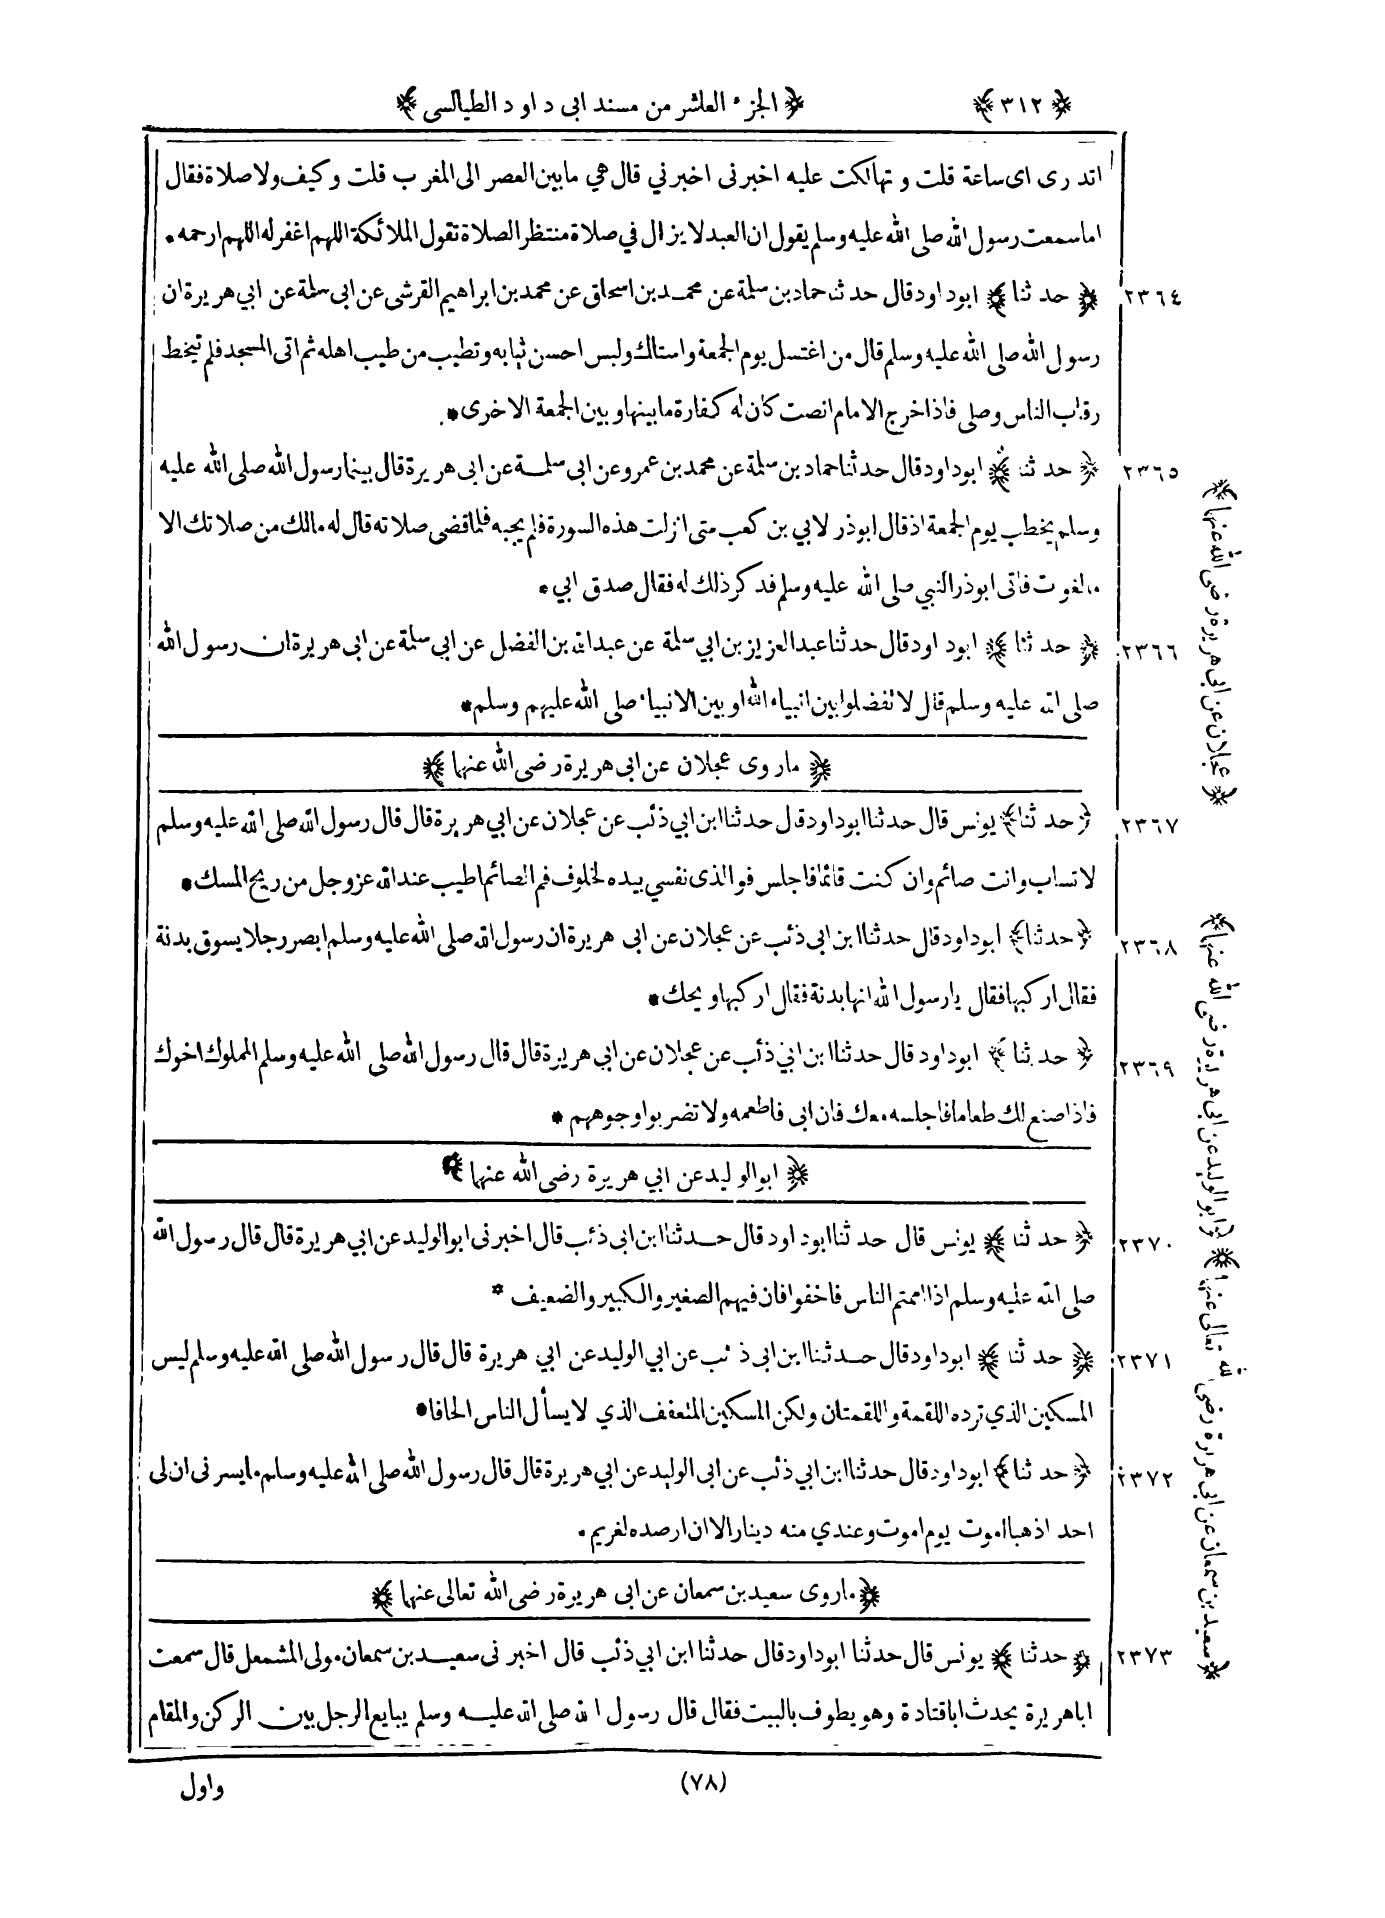 ﴿٣١٢﴾ ﴿الجزء العاشر من مسند ابى داود الطيالسى﴾
اتدرى اى ساعة قلت وتهالكت عليه اخبرنى اخبرني قال هي مابين العصر الى المغرب قلت وكيف ولا صلاة فقال
اما سمعت رسول الله صلى الله عليه وسلم يقول ان العبد لا يزال في صلاة منتظر الصلاة تقول الملائكة اللهم اغفر له اللهم ارحمه *
٢٣٦٤ ﴿حدثنا﴾ ابوداود قال حدثنا حماد بن سلمة عن محمد بن اسحاق عن محمد بن ابراهيم القرشى عن ابى سلمة عن ابي هريرة ان
رسول الله صلى الله عليه وسلم قال من اغتسل يوم الجمعة واستاك ولبس احسن ثيابه وتطيب من طيب اهله ثم اتى المسجد فلم تيخط
رقاب الناس وصلى فاذا خرج الامام انصت كان له كفارة مابينها وبين الجمعة الاخرى *
٢٣٦٥ ﴿حدثنا﴾ ابوداود قال حدثنا حماد بن سلمة عن محمد بن عمرو عن ابى سلمة عن ابى هريرة قال بينما رسول الله صلى الله عليه
وسلم يخطب يوم الجمعة اذ قال ابوذر لابي بن كعب متى انزلت هذه السورة فلم يجبه فلما قضى صلاته قال له مالك من صلاتك الا
مالغوت فاتى ابوذر النبي صلى الله عليه وسلم فذكر ذلك له فقال صدق ابي *
٢٣٦٦ ﴿حدثنا﴾ ابوداود قال حدثنا عبدالعزيز بن ابي سلمة عن عبدالله بن الفضل عن ابي سلمة عن ابى هريرة ان رسول الله
صلى الله عليه وسلم قال لا تفضلوا بين انبياء الله او بين الانبياء صلى الله عليهم وسلم *
﴿ماروى عجلان عن ابى هريرة رضى الله عنها﴾
٢٣٦٧ ﴿حدثنا﴾ يونس قال حدثنا ابوداود قال حدثنا ابن ابي ذئب عن عجلان عن ابي هريرة قال قال رسول الله صلى الله عليه وسلم
لا تساب وانت صائم وان كنت قائما فاجلس فوالذى نفسي بيده لخلوف فم الصائم اطيب عند الله عز وجل من ريح المسك *
٢٣٦٨ ﴿حدثنا﴾ ابوداود قال حدثنا ابن ابى ذئب عن عجلان عن ابى هريرة ان رسول الله صلى الله عليه وسلم ابصر رجلا يسوق بدنة
فقال اركبها فقال يا رسول الله انها بدنة فقال اركبها ويحك *
٢٣٦٩ ﴿حدثنا﴾ ابوداود قال حدثنا ابن ابي ذئب عن عجلان عن ابي هريرة قال قال رسول الله صلى الله عليه وسلم المملوك اخوك
فاذا صنع لك طعاما فاجلسه معك فان ابى فاطعمه ولا تضربوا وجوههم *
﴿ابوالوليد عن ابي هريرة رضى الله عنها﴾
٢٣٧٠ ﴿حدثنا﴾ يونس قال حدثنا ابوداود قال حدثنا ابن ابى ذئب قال اخبرنى ابوالوليد عن ابي هريرة قال قال رسول الله
صلى الله عليه وسلم اذا اممتم الناس فاخفوا فان فيهم الصغير والكبير والضعيف *
٢٣٧١ ﴿حدثنا﴾ ابوداود قال حدثنا ابن ابى ذئب عن ابي الوليد عن ابي هريرة قال قال رسول الله صلى الله عليه وسلم ليس
المسكين الذي ترده اللقمة واللقمتان ولكن المسكين المتعفف الذي لا يسأل الناس الحافا *
٢٣٧٢ ﴿حدثنا﴾ ابوداود قال حدثنا ابن ابي ذئب عن ابى الوليد عن ابي هريرة قال قال رسول الله صلى الله عليه وسلم مايسرنى ان لى
احد اذهبا اموت يوم اموت وعندي منه دينار الا ان ارصده لغريم *
﴿ماروى سعيد بن سمعان عن ابى هريرة رضى الله تعالى عنها﴾
٢٣٧٣ ﴿حدثنا﴾ يونس قال حدثنا ابوداود قال حدثنا ابن ابي ذئب قال اخبرنى سعيد بن سمعان مولى المشمعل قال سمعت
اباهريرة يحدث اباقتادة وهو يطوف بالبيت فقال قال رسول الله صلى الله عليه وسلم يبايع الرجل بين الركن والمقام
(٧٨)
واول
﴿عجلان عن ابى هريرة رضى الله عنها﴾
﴿ابوالوليد عن ابى هريرة رضى الله عنها﴾
﴿سعيد بن سمعان عن ابى هريرة رضى الله تعالى عنها﴾